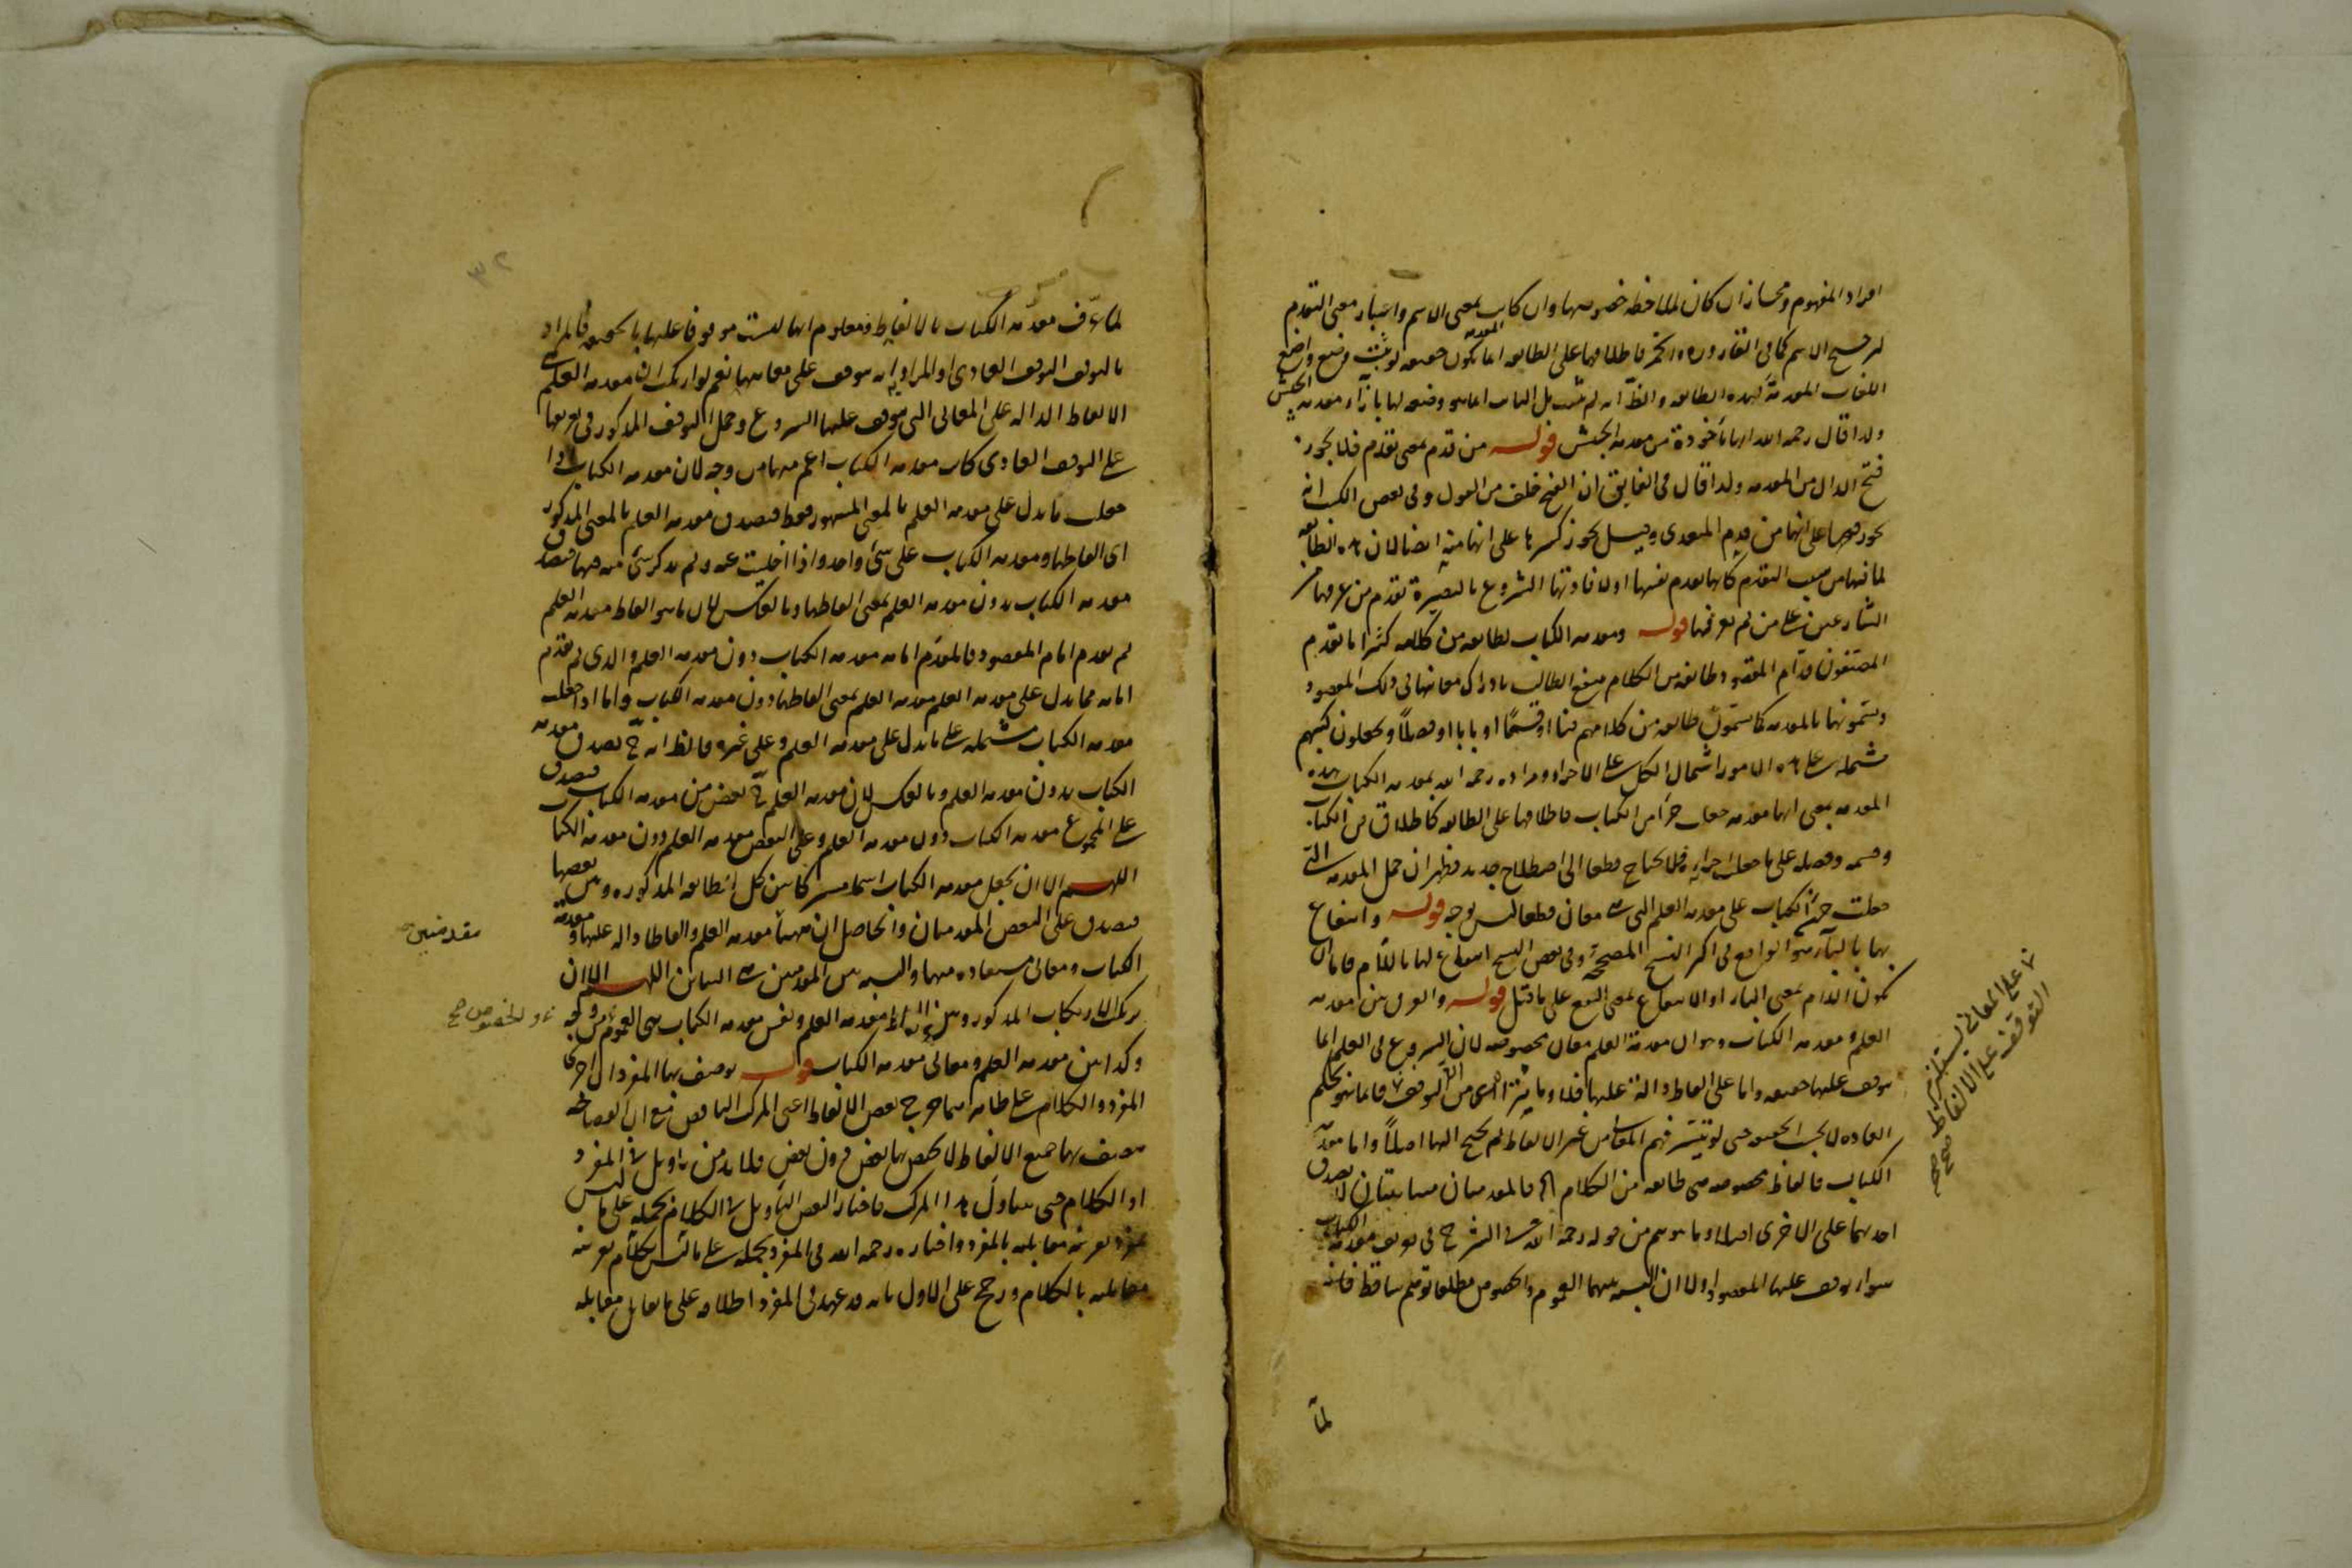 افراد المفهوم ومجازا ان كان لملاحظة خصوصها وان كانت بمعنى الاسم واعتبار معنى التقدم
لترجيح الاسم كما فى القارورة والخمر فاطلاقها على الطائفة انما يكون حقيقة لو ثبت وضع واضع
اللغات المقدمة لهذه الطائفة والظ انه لم يثبت بل الثابت انما هو وضعه لها بازاء مقدمة الجيش
ولذا قال رحمه الله انها مأخوذة من مقدمة الجيش قوله من قدم بمعنى تقدم فلا يجوز
فتح الدال من المقدمة ولذا قال فى الفايق ان الفتح خلف من القول وفى بعض الكتب انه
يجوز فتحها على انها من قدم المتعدى وقيل يجوز كسرها على انها منه ايضا لان هذه الطائفة
لما فيها من سبب التقدم كانها تقدم نفسها او لافادتها الشروع بالبصيرة تقدم من عرفها من
الشارعين على من لم يعرفها قوله ومقدمة الكتاب لطائفة من كلامه كثيرا ما تقدم
المصنفون قدام المقصود طائفة من الكلام ينتفع الطالب بادراك معانيها فى ذلك المقصود
ويسمونها بالمقدمة كما يسمون طائفة من كلامهم فنا او قسما او بابا او فصلا ويجعلون كتبهم
مشتملة على هذه الامور اشتمال الكل على الاجزاء ومراده رحمه الله بمقدمة الكتاب هذه
المقدمة بمعنى انها مقدمة جعلت جزأ من الكتاب فاطلاقها على الطائفة كاطلاق فن الكتاب
وقسمه وفصله على ما جعلت اجزاءه فلا يحتاج قطعا الى اصطلاح جديد فظهر ان حمل المقدمة التى
جعلت جزء الكتاب على مقدمة العلم التى هى معان قطعا ليس بوجه قوله وانتفاع
بها بالباء هو الواقع فى اكثر النسخ المصححة وفى بعض النسخ انتفاع لها باللام فاما ان
يكون اللام بمعنى الباء او الانتفاع بمعنى النفع على ما قيل قوله والفرق بين مقدمة
العلم ومقدمة الكتاب وهو ان مقدمة العلم معان مخصوصة لان الشروع فى العلم انما
يتوقف عليها حقيقة واما على الفاظ دالة عليها فلا وما يترا اى من ان التوقف فانما هو بحكم
العادة لا بحسب الحقيقة حتى لو تيسر فهم المعانى من غير الالفاظ لم يحتج اليها اصلا واما مقدمة
الكتاب فالفاظ مخصوصة هى طائفة من الكلام الخ فالمقدمتان متباينتان لا تصدق
احديهما على الاخرى اصلا وما يتوهم من قوله رحمه الله فى الشرح فى تعريف مقدمة الكتاب
سواء توقف عليها المقصود او لا ان النسبة بينهما العموم والخصوص مطلقا توهم ساقط فانه
على المعانى يستلزم
التوقف على الالفاظ صح
لما
٣٢
لما عرف مقدمة الكتاب بالالفاظ ومعلوم انها ليست موقوفا عليها بالحقيقة فالمراد
بالتوقف التوقف العادى او المراد انه يتوقف على معانيها نعم لو اريد ان مقدمة العلم هى
الالفاظ الدالة على المعانى التى يتوقف عليها الشروع وحمل التوقف المذكور فى تعريفها
على التوقف العادى كانت مقدمة الكتاب اعم منها من وجه لان مقدمة الكتاب اذا
جعلت ما يدل على مقدمة العلم بالمعنى المشهور فقط فتصدق مقدمة العلم بالمعنى المذكور
اى الفاظها ومقدمة الكتاب على شئ واحد واذا اخليت عنه ولم يذكر شئ منه فيها فتصدق
مقدمة الكتاب بدون مقدمة العلم بمعنى الفاظها وبالعكس لان ما هو الفاظ مقدمة العلم
لم تقدم امام المقصود فالمقدم امامه مقدمة الكتاب دون مقدمة العلم والذى لم يقدم
امامه مما يدل على مقدمة العلم مقدمة العلم بمعنى الفاظها دون مقدمة الكتاب واما اذا جعلت
مقدمة الكتاب مشتملة على ما يدل على مقدمة العلم وعلى غيره فالظ انه ح تصدق مقدمة
الكتاب بدون مقدمة العلم وبالعكس لان مقدمة العلم ح بعض من مقدمة الكتاب فتصدق
على المجموع مقدمة الكتاب دون مقدمة العلم وعلى البعض مقدمة العلم دون مقدمة الكتاب
اللهم الا ان يجعل مقدمة الكتاب اسما مشتركا بين كل الطائفة المذكورة وبين بعضها
فتصدق على البعض المقدمتان والحاصل ان ههنا مقدمة العلم والفاظا دالة عليها ومقدمة
الكتاب ومعانى مستفادة منها والنسبة بين المقدمتين هى التباين اللهم الا ان
يرتكب الارتكاب المذكور وبين الفاظ مقدمة العلم ونفس مقدمة الكتاب هى العموم من وجه
وكذا بين مقدمة العلم ومعانى مقدمة الكتاب قوله يوصف بها المفرد ان اجرى
المفرد والكلام على ظاهرهما خرج بعض الالفاظ اعنى المركب الناقص مع ان الفصاحة
يتصف بها جميع الالفاظ لا يختص بها بعض دون بعض فلا بد من تأويل فى المفرد
او الكلام حتى يتناول هذا المركب فاختار البعض التأويل فى الكلام بحمله على ما ليس
بمفرد بقرينة مقابلته بالمفرد واختاره رحمه الله فى المفرد بحمله على ما ليس بكلام بقرينة
مقابلته بالكلام ورجح على الاول بانه قد عهد فى المفرد اطلاقه على ما يقابل مقابله
مقدمتين
والخصوص صح